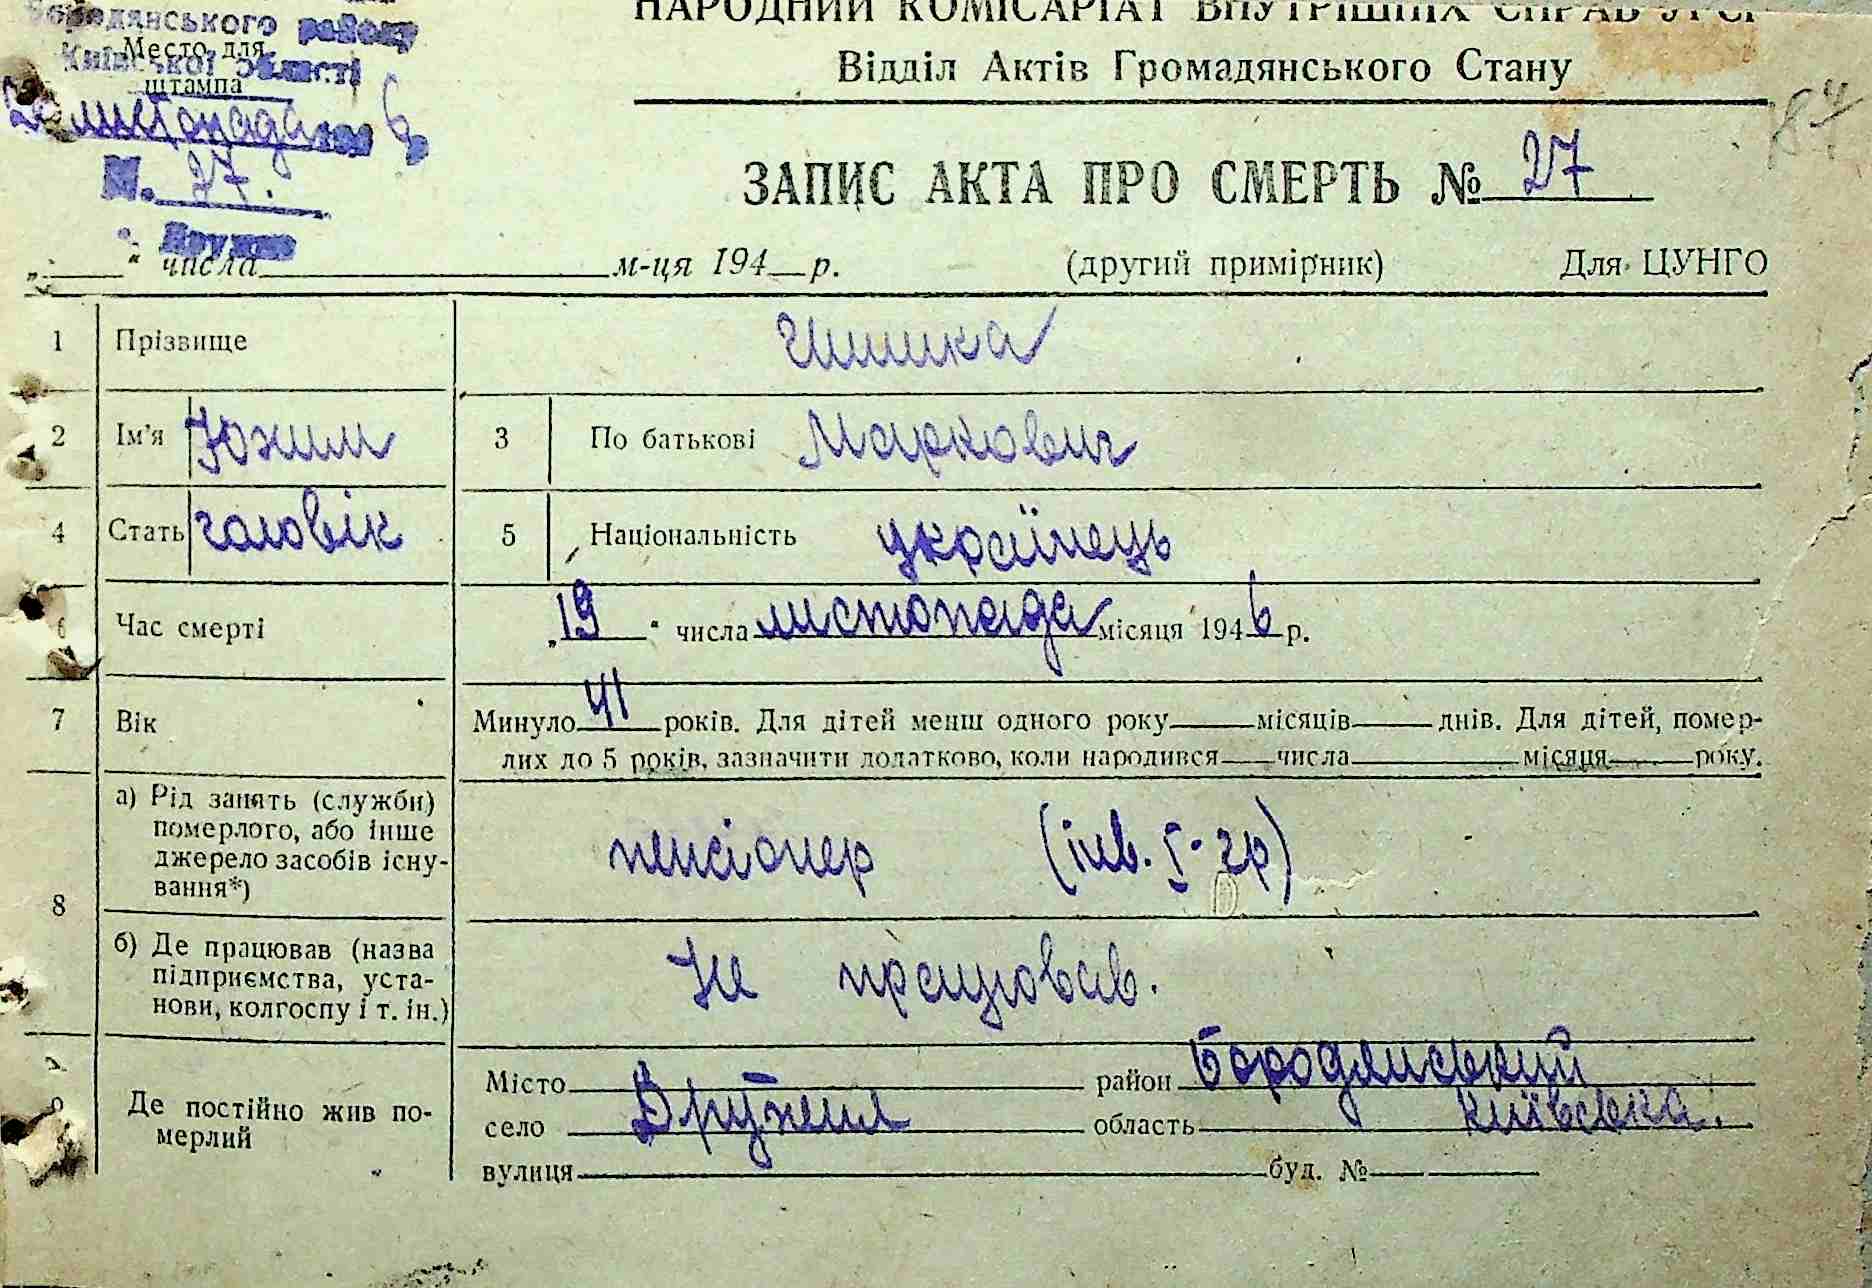 Бородянського району
Київської області
Место для
штампа
20 листопада 1946 р
N. 27.
Дружне
НАРОДНИЙ КОМІСАРІАТ ВНУТРІШНІХ СПРАВ УРСР
Відділ Актів Громадянського Стану
84
ЗАПИС АКТА ПРО СМЕРТЬ № 27
„ “ числа м-ця 194 р. (другий примірник) Для ЦУНГО
1 Прізвище Шишка
2 Ім'я Юхим 3 По батькові Маркович
4 Стать чоловік 5 Національність українець
6 Час смерті „19“ числа листопада місяця 1946 р.
7 Вік Минуло 41 років. Для дітей менш одного року місяців днів. Для дітей, помер-
лих до 5 років, зазначити додатково, коли народився числа місяця року.
8 а) Рід занять (служби)
померлого, або інше
джерело засобів існу-
вання*)
пенсіонер (інв. I-гр)
б) Де працював (назва
підприємства, уста-
нови, колгоспу і т. ін.)
Не працював.
9 Де постійно жив по-
мерлий
Місто район Бородянський
село Дружня область Київська.
вулиця буд. №